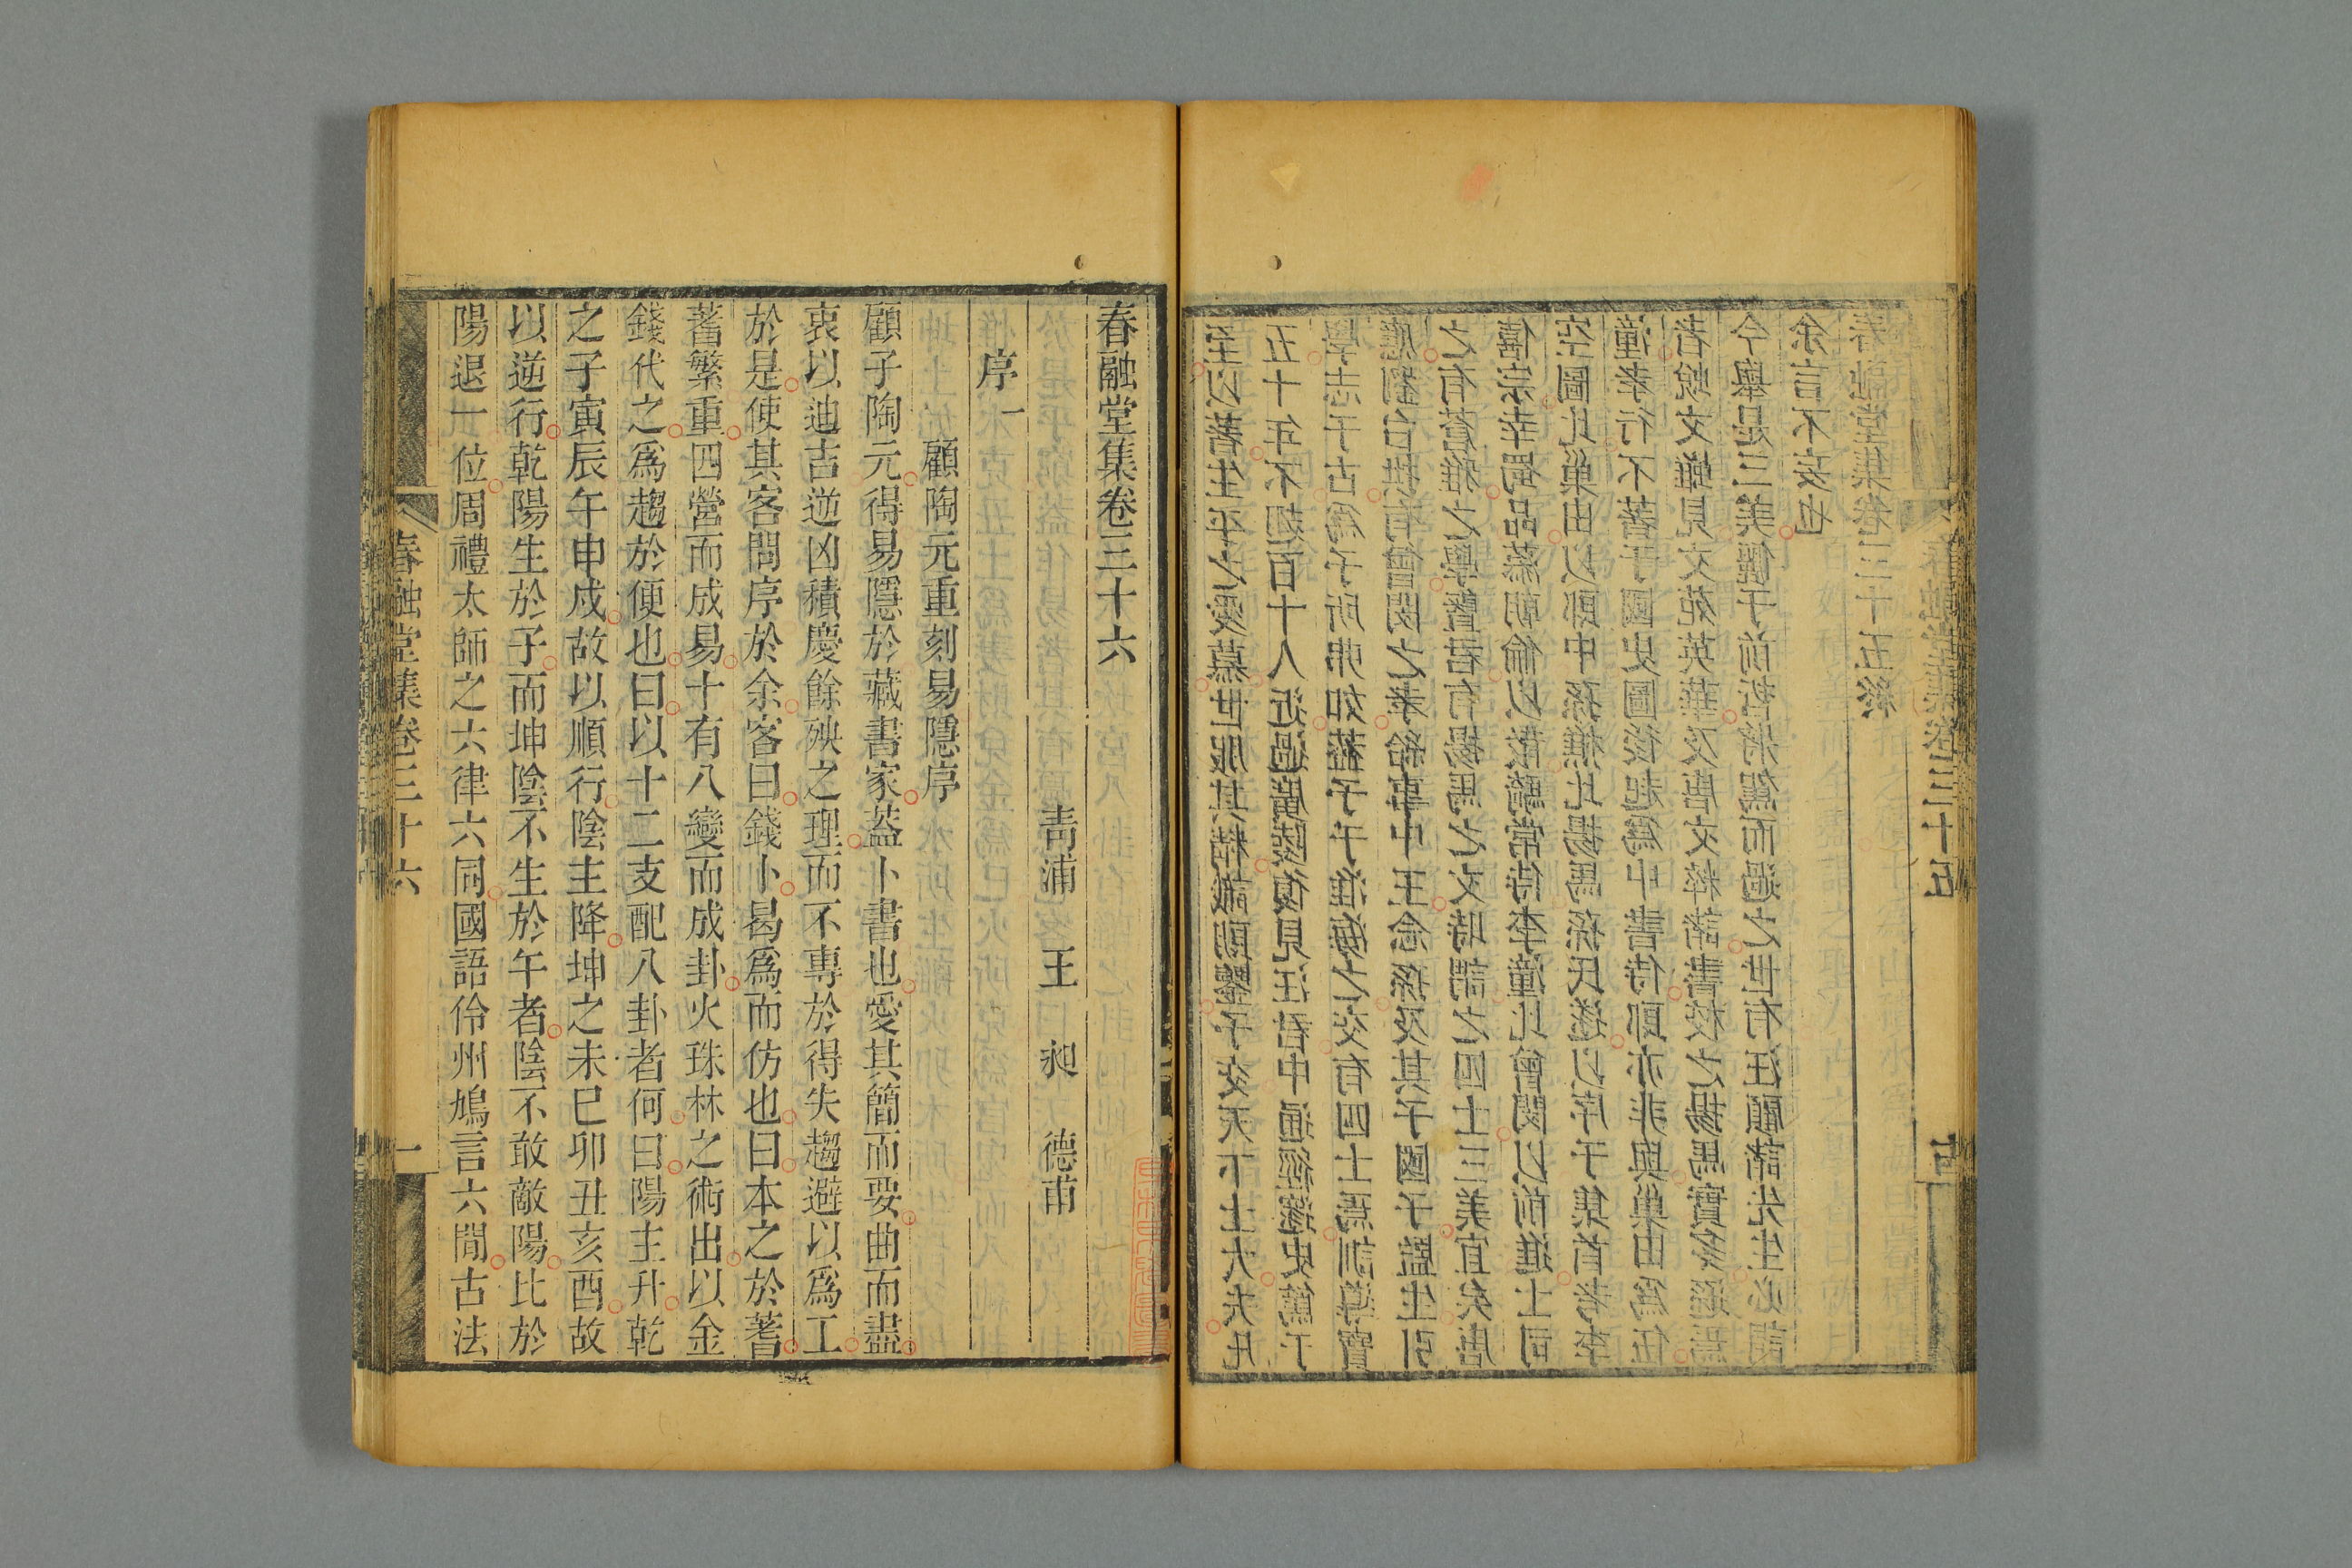 春融堂集卷三十六
青浦 王 昶 德甫
序一
顧陶元重刻易隱序
顧子陶元得易隱於藏書家葢卜書也愛其簡而要曲而盡
衷以迪吉逆凶積慶餘殃之理而不專於得失趨避以爲工
於是使其客問序於余客曰錢卜曷爲而仿也曰本之於蓍
蓍繁重四營而成易十有八變而成卦火珠林之術出以金
錢代之爲趨於便也曰以十二支配八卦者何曰陽主升乾
之子寅辰午申戍故以順行陰主降坤之未巳卯丑亥酉故
以逆行乾陽生於子而坤陰不生於午者陰不敢敵陽比於
陽退一位周禮太師之六律六同國語伶州鳩言六閒古法
春融堂集卷三十六
一
至以諸生平心愛慕世服其精識
五十年不百十人近過廣陵復見汪君中通經史篤于
學志于古爲所弗如于淮海之文有四士焉訓導寶
應劉台拱有曾閔之孝給事中王念孫及其子國子監生引
之有蒼雅之學暨君有揚馬之文時謂之四士三美宜矣唐
僖宗幸蜀品藻朝倫以散騎常侍李潼比曾閔以前進士司
空圖比巢由以郎中孫樵比揚馬孫氏遂以序于集首考李
潼孝行不著于國史圖後起爲中書侍郎亦非與巢由爲伍
者樵文雖見文苑英華及唐文粹諸書校之揚馬實多遜焉
今舉是三美儷于前哲將駕而過之世有汪顧諸先生必謂
余言不妄也
春融堂集卷三十五終
春融堂集卷三十五